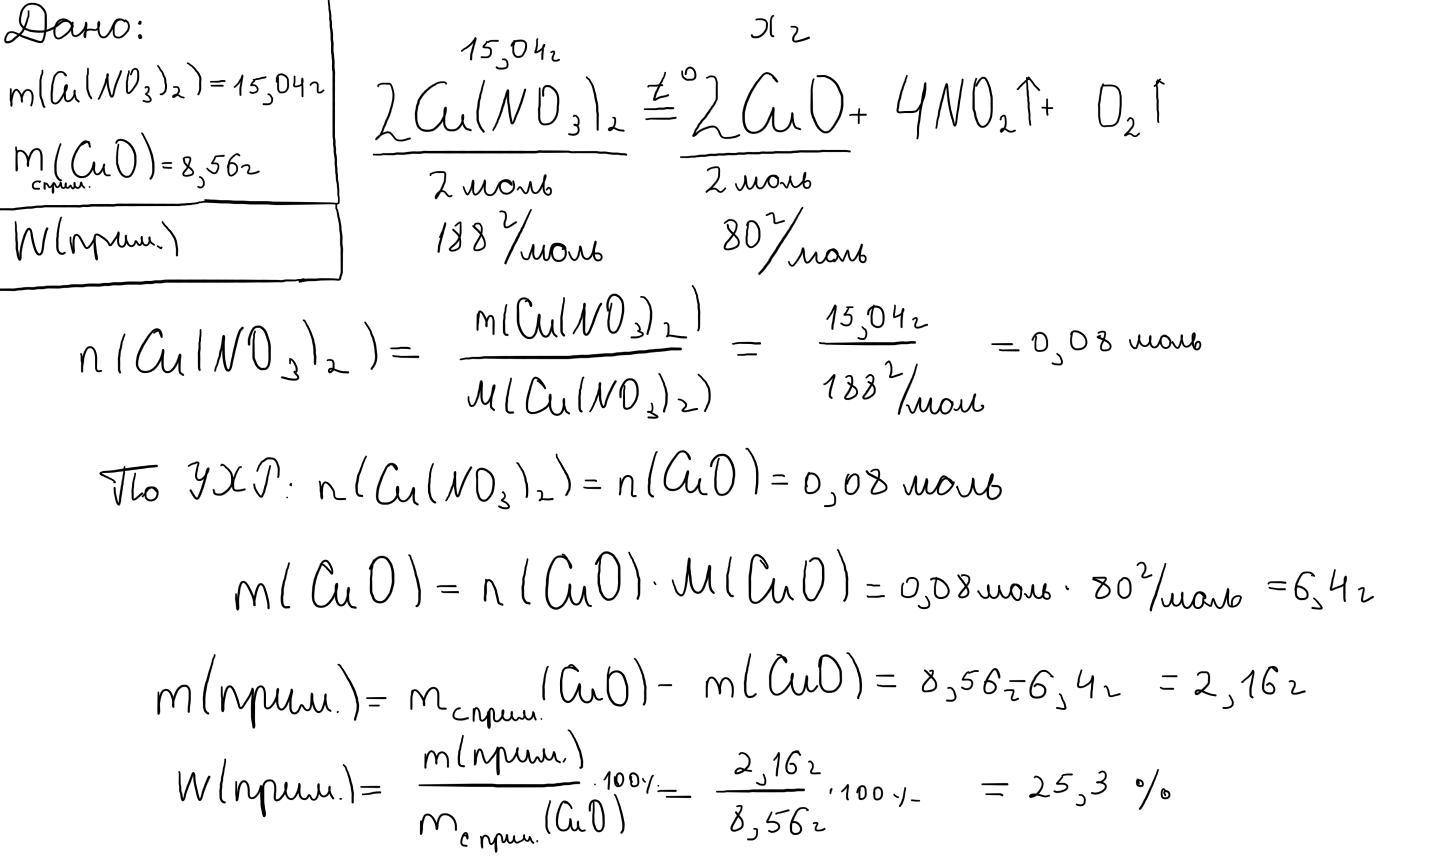 Дано:
m(Cu(NO₃)₂)=15,04г
m с прим.(CuO)=8,56г
W(прим.)
15,04г x г
2Cu(NO₃)₂ t°= 2CuO + 4NO₂↑ + O₂↑
2 моль 2 моль
188 г/моль 80 г/моль
n(Cu(NO₃)₂) = m(Cu(NO₃)₂)/M(Cu(NO₃)₂) = 15,04г/188 г/мол = 0,08 моль
По УХР: n(Cu(NO₃)₂) = n(CuO) = 0,08 моль
m(CuO) = n(CuO) · M(CuO) = 0,08 моль · 80 г/моль = 6,4г
m(прим.) = m с прим.(CuO) - m(CuO) = 8,56г-6,4г = 2,16г
W(прим.) = m(прим.)/m с прим.(CuO) · 100% = 2,16г/8,56г · 100% = 25,3 %